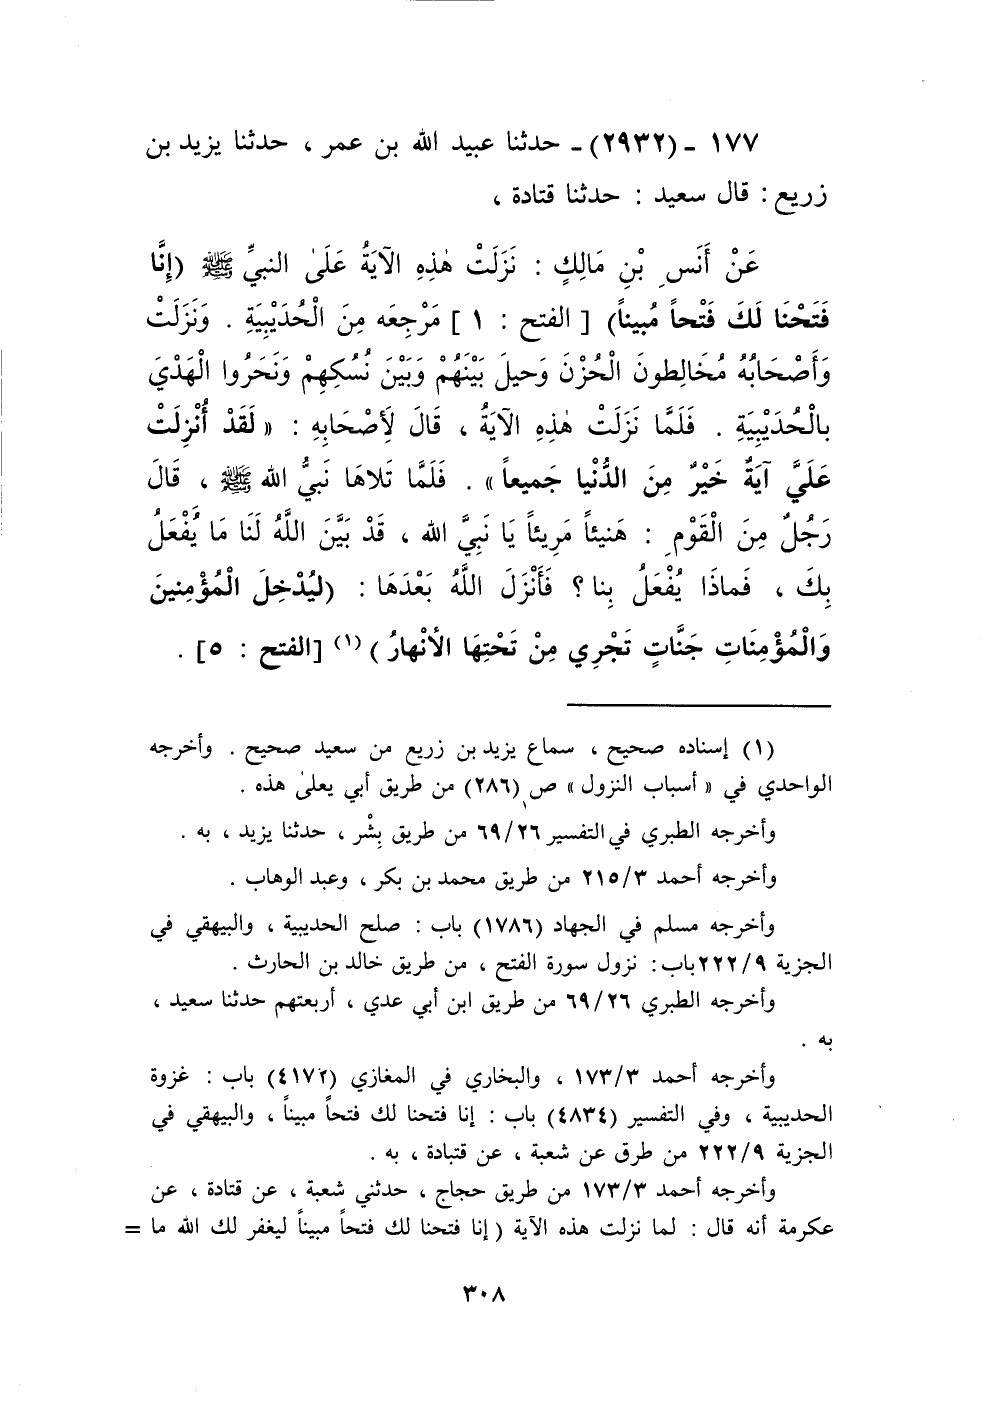 ١٧٧ - (٢٩٣٢) - حدثنا عبيد الله بن عمر ، حدثنا يزيد بن
زريع : قال سعيد : حدثنا قتادة ،
عَنْ أَنَسِ بْنِ مَالِكٍ : نَزَلَتْ هٰذِهِ الآيَةُ عَلَىٰ النبيِّ ﷺ (إِنَّا
فَتَحْنَا لَكَ فَتْحاً مُبيناً) [ الفتح : ١ ] مَرْجِعَه مِنَ الْحُدَيْبِيَةِ . وَنَزَلَتْ
وَأَصْحَابُهُ مُخَالِطونَ الْحُزْنَ وَحيلَ بَيْنَهُمْ وَبَيْنَ نُسُكِهِمْ وَنَحَرُوا الْهَدْيَ
بالْحُدَيْبِيَةِ . فَلَمَّا نَزَلَتْ هٰذِهِ الآيَةُ ، قَالَ لَأِصْحَابِهِ : « لَقَدْ أُنْزِلَتْ
عَلَيَّ آيَةٌ خَيْرٌ مِنَ الدُّنْيا جَميعاً » . فَلَمَّا تَلاهَا نَبيُّ الله ﷺ ، قَالَ
رَجُلٌ مِنَ الْقَوْمِ : هَنيئاً مَريئاً يَا نَبيَّ الله ، قَدْ بَيَّنَ اللَّهُ لَنَا مَا يُفْعَلُ
بِكَ ، فَماذَا يُفْعَلُ بِنا ؟ فَأَنْزَلَ اللَّهُ بَعْدَهَا : (لِيُدْخِلَ الْمُؤْمِنينَ
وَالْمُؤْمِنَاتِ جَنَّاتٍ تَجْرِي مِنْ تَحْتِهَا الأنْهارُ) (١) [الفتح : ٥] .
(١) إسناده صحيح ، سماع يزيد بن زريع من سعيد صحيح . وأخرجه
الواحدي في « أسباب النزول » ص (٢٨٦) من طريق أبي يعلىٰ هذه .
وأخرجه الطبري في التفسير ٦٩/٢٦ من طريق بِشْر ، حدثنا يزيد ، به .
وأخرجه أحمد ٢١٥/٣ من طريق محمد بن بكر ، وعبد الوهاب .
وأخرجه مسلم في الجهاد (١٧٨٦) باب : صلح الحديبية ، والبيهقي في
الجزية ٢٢٢/٩ باب : نزول سورة الفتح ، من طريق خالد بن الحارث .
وأخرجه الطبري ٦٩/٢٦ من طريق ابن أبي عدي ، أربعتهم حدثنا سعيد ،
به .
وأخرجه أحمد ١٧٣/٣ ، والبخاري في المغازي (٤١٧٢) باب : غزوة
الحديبية ، وفي التفسير (٤٨٣٤) باب : إنا فتحنا لك فتحاً مبيناً ، والبيهقي في
الجزية ٢٢٢/٩ من طرق عن شعبة ، عن قتبادة ، به .
وأخرجه أحمد ١٧٣/٣ من طريق حجاج ، حدثني شعبة ، عن قتادة ، عن
عكرمة أنه قال : لما نزلت هذه الآية ( إنا فتحنا لك فتحاً مبيناً ليغفر لك الله ما =
٣٠٨